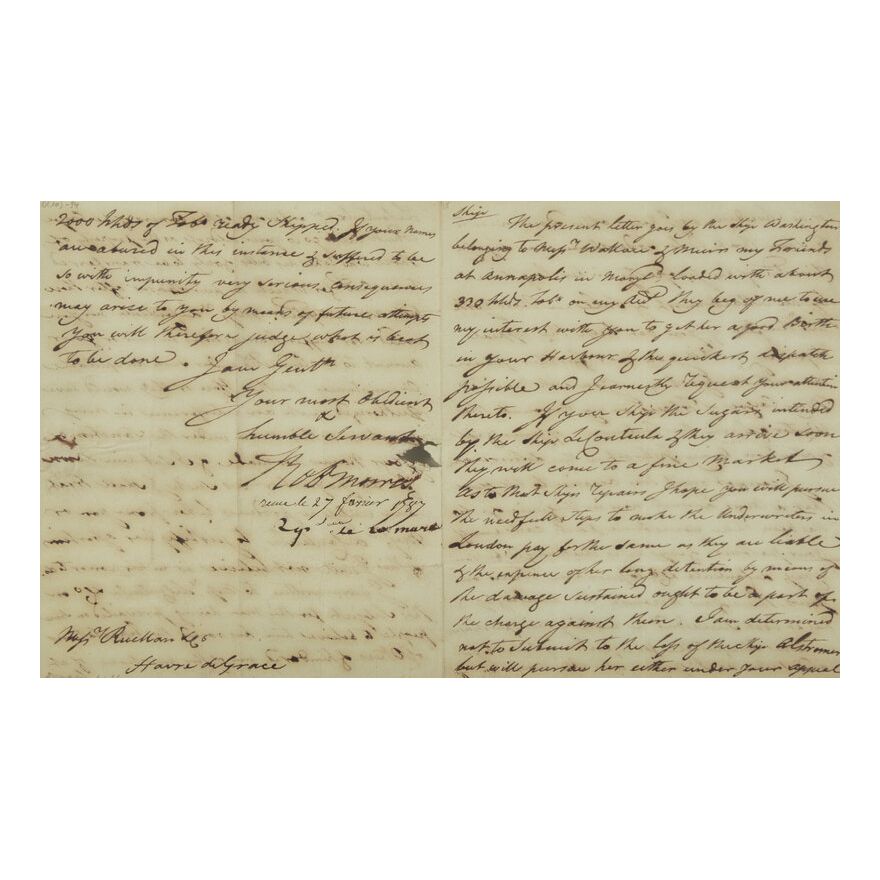 2000 hhds of Tobo ready Shipped. If your names
are abused in this instance & suffered to be
so with impunity very serious Consequences
may arise to you by means of future attempts
You will therefore judge what is best
to be done. I am Gentn
Your most Obedient
&
humble Servant
Robt Morris
27 fevrier 1787
le mars
Messrs Ruellan & Co
Havre de Grace
Ship
The present letter goes by the Ship Washington
belonging to Messrs Wallace & Muir my Friends
at Annapolis in Maryld Loaded with about
330 hhds Tobo on my Acct They beg of me to use
my interest with you to get her a good Birth
in your Harbour & the quickest dispatch
possible and I earnestly request your attention
thereto. If you Ship the Sugars intended
by the Ship & they arrive soon
they will come to a fine Market
As to that Ships repairs I hope you will pursue
the needfull steps to make the Underwriters in
London pay for the same as they are liable
& the expence of her long detention by means of
the damage sustained ought to be a part of
the charge against them. I am determined
not to submit to the loss of the Ship Alstromer
but will pursue her either under your appeal